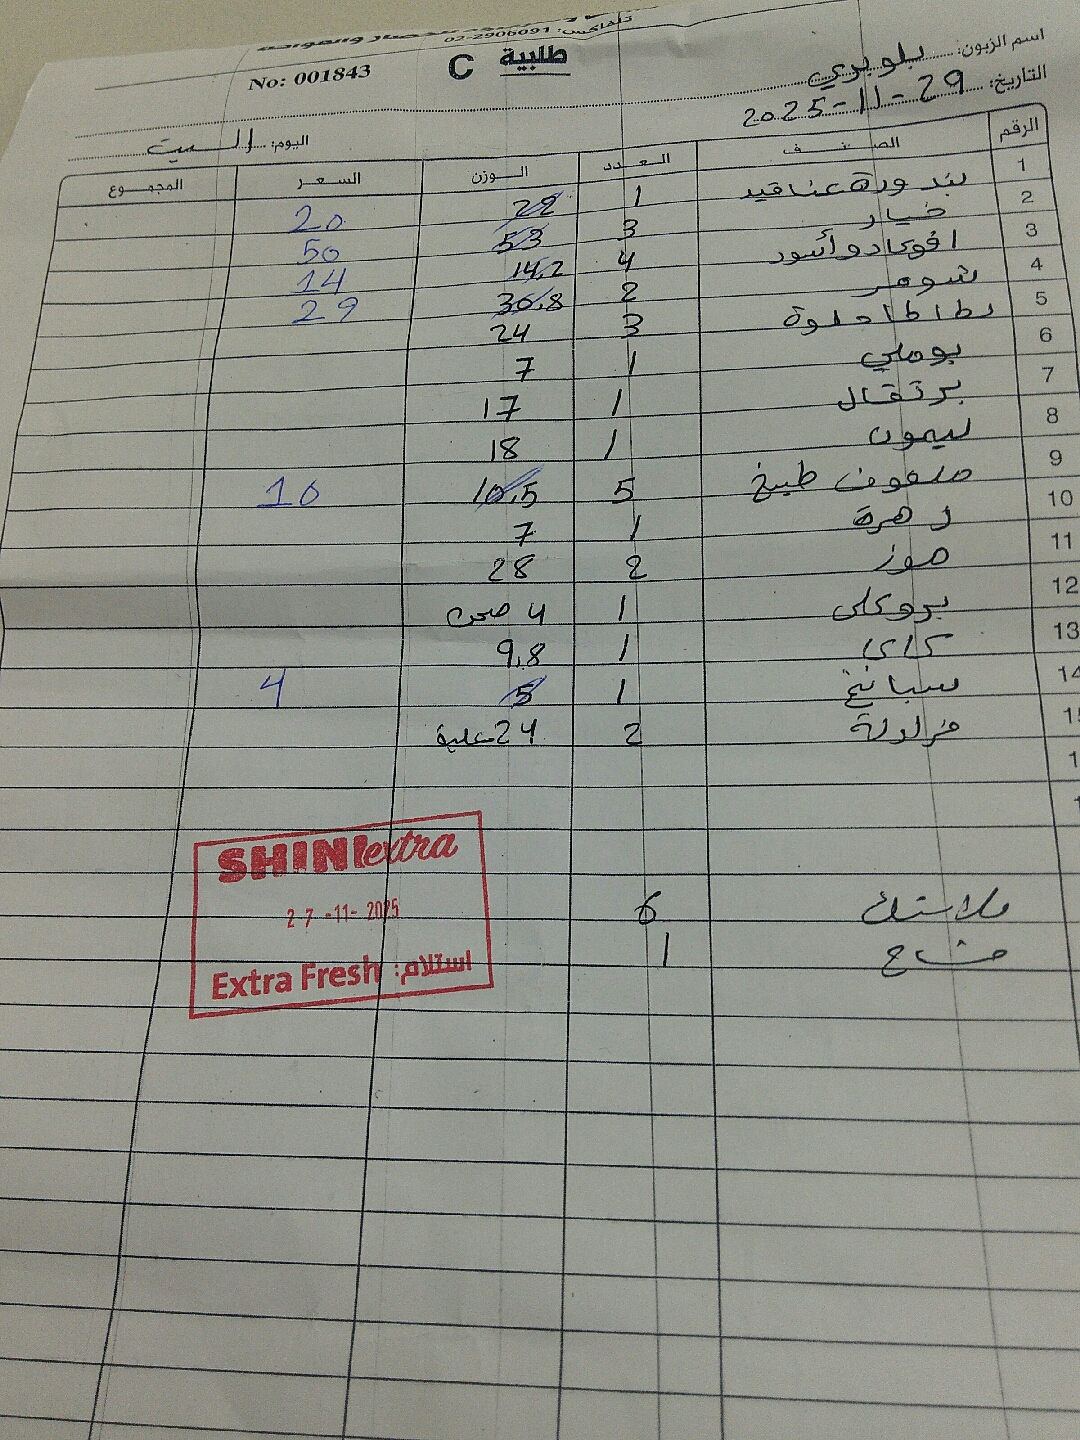 تلفاكس: 02-2906091
No: 001843
طلبية C
اسم الزبون: بلوبري
التاريخ: 29-11-2025
اليوم: السبت
الرقم الصنف العدد الوزن السعر المجموع
1 بندورة عناقيد 1 22 20
2 خيار 3 53 50
3 افوكادو أسود 4 14.2 14
4 شومر 2 30.8 29
5 بطاطا حلوة 3 24
6 بوملي 1 7
7 برتقال 1 17
8 ليمون 1 18
9 ملفوف طبيخ 5 10.5 10
10 زهرة 1 7
11 موز 2 28
12 بروكلي 1 4
13 كاكا 1 9.8
14 سبانخ 1 5 4
15 فراولة 2 24 علبة
بلاستك 6
مشاح 1
SHINI extra
27-11-2025
Extra Fresh استلام: